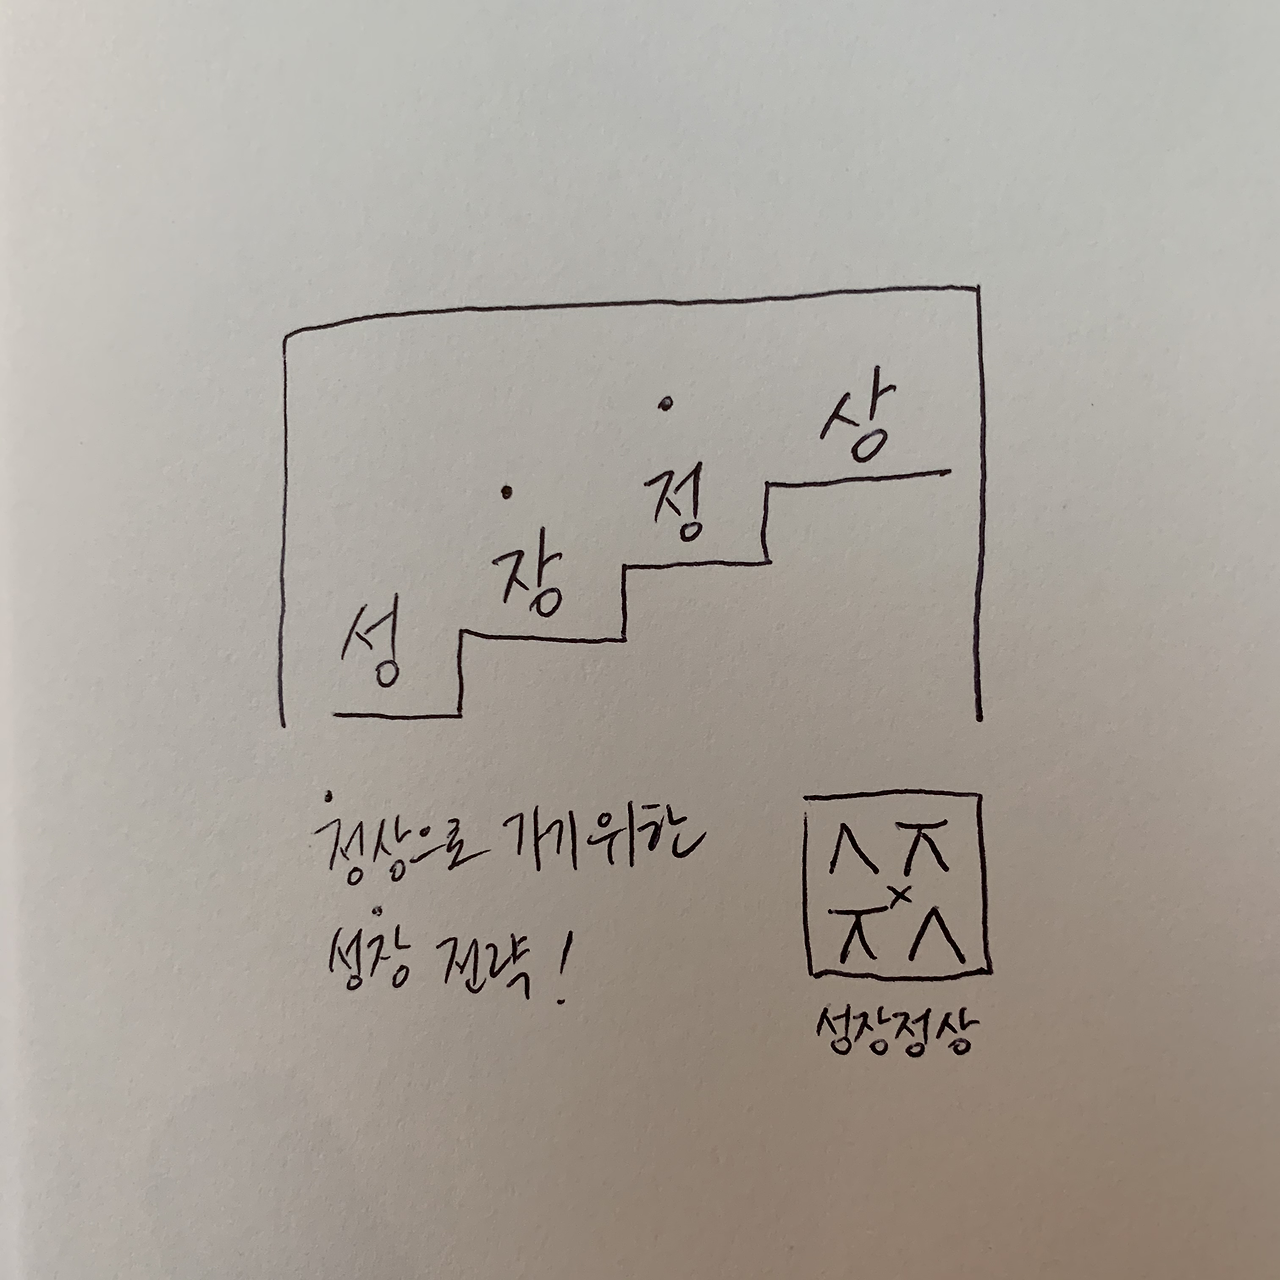 성
장
정
상
정상으로 가기위한
성장 전략!
ㅅㅈ
×
ㅈㅅ
성장정상